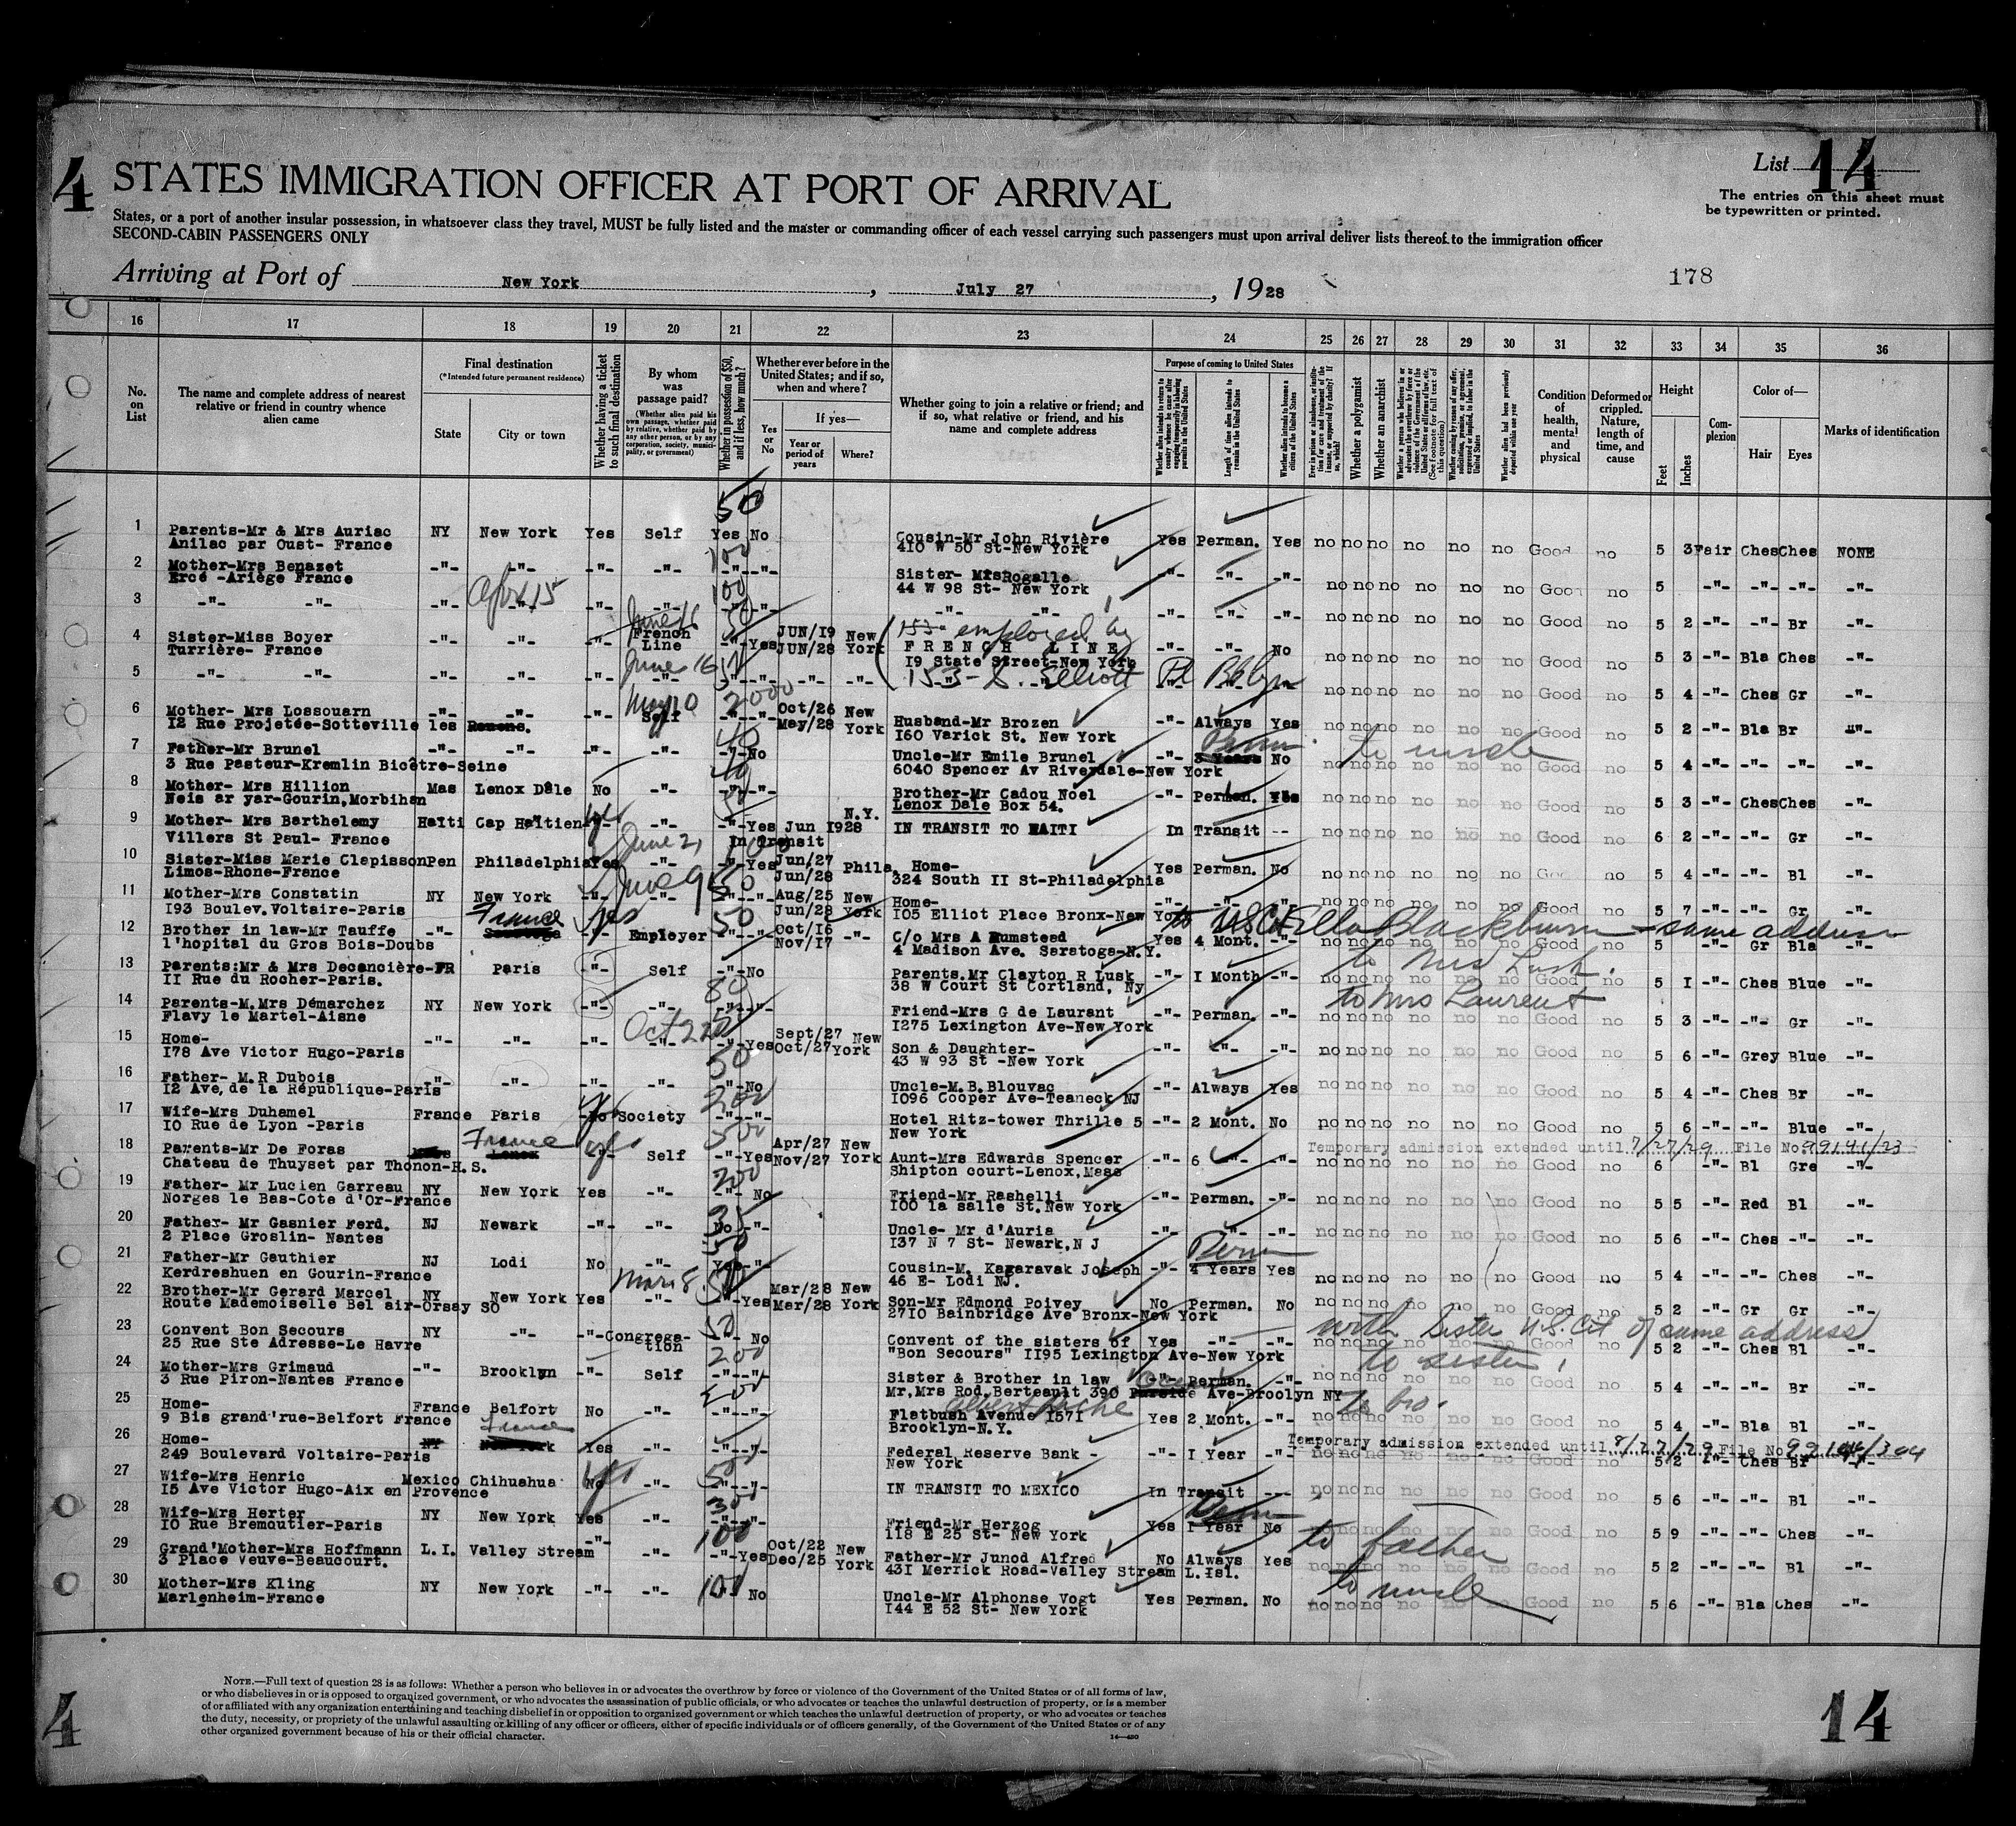 4
STATES IMMIGRATION OFFICER AT PORT OF ARRIVAL
List 14
The entries on this sheet must
be typewritten or printed.
States, or a port of another insular possession, in whatsoever class they travel, MUST be fully listed and the master or commanding officer of each vessel carrying such passengers must upon arrival deliver lists thereof to the immigration officer
SECOND-CABIN PASSENGERS ONLY
Arriving at Port of New York, July 27, 1928
178
16 17 18 19 20 21 22 23 24 25 26 27 28 29 30 31 32 33 34 35 36
No. on List
The name and complete address of nearest relative or friend in country whence alien came
Final destination
(*Intended future permanent residence)
State City or town
Whether having a ticket to such final destination
By whom was passage paid?
(Whether alien paid his own passage, whether paid by relative, whether paid by any other person, or by any corporation, society, municipality, or government)
Whether in possession of $50, and if less, how much?
Whether ever before in the United States; and if so, when and where?
Yes or No
If yes—
Year or period of years
Where?
Whether going to join a relative or friend; and if so, what relative or friend, and his name and complete address
Purpose of coming to United States
Length of time alien intends to remain in the United States
Whether alien intends to become a citizen of the United States
Whether a polygamist
Whether an anarchist
Condition of health, mental and physical
Deformed or crippled. Nature, length of time, and cause
Height
Feet Inches
Complexion
Color of—
Hair Eyes
Marks of identification
50
1 Parents-Mr & Mrs Auriac NY New York Yes Self Yes No Cousin-Mr John Rivière Yes Perman. Yes no no no no no no Good no 5 3 Fair Ches Ches NONE
Anilac par Oust- France 410 W 50 St-New York
100
2 Mother-Mrs Benazet -"- -"- -"- -"- -"- -"- Sister- Mrs Rogalle -"- -"- -"- no no no no no no Good no 5 -"- -"- -"- -"-
Ercé -Ariège France 44 W 98 St- New York
100
3 -"- -"- -"- -"- -"- -"- -"- -"- -"- -"- -"- -"- -"- no no no no no no Good no 5 2 -"- -"- Br -"-
June 16 50
4 Sister-Miss Boyer -"- -"- -"- French Line -"- Yes JUN/19 JUN/28 New York employed by FRENCH LINE -"- -"- No no no no no no no Good no 5 3 -"- Bla Ches -"-
Turrière- France 19 State Street-New York
June 16
5 -"- -"- -"- -"- -"- -"- -"- -"- -"- -"- 153 Elliott Pl Bklyn no no no no no no Good no 5 4 -"- Ches Gr -"-
May 10 2000
6 Mother- Mrs Lossouarn -"- -"- -"- Self -"- -"- Oct/26 May/28 New York Husband-Mr Brozen -"- Always Yes no no no no no no Good no 5 2 -"- Bla Br -"-
12 Rue Projetée-Sotteville les Rouens. 160 Varick St. New York
40 Perm to uncle
7 Father-Mr Brunel -"- -"- -"- -"- -"- No Uncle-Mr Emile Brunel -"- 3 Years No no no no no no no Good no 5 4 -"- -"- -"- -"-
3 Rue Pasteur-Kremlin Bicêtre-Seine 6040 Spencer Av Riverdale-New York
40
8 Mother- Mrs Hillion Mas Lenox Dâle No -"- -"- -"- Brother-Mr Cadou Noel -"- Perman. Yes no no no no no no Good no 5 3 -"- Ches Ches -"-
Neis ar yar-Gourin, Morbihan Lenox Dale Box 54.
50 yes
9 Mother- Mrs Barthelemy Haïti Cap Haïtien -"- -"- -"- Yes Jun 1928 N.Y. IN TRANSIT TO HAITI In Transit -- no no no no no no Good no 6 2 -"- -"- Gr -"-
Villers St Paul- France In Transit
June 2, 100
10 Sister-Miss Marie Clapisson Pen Philadelphia Yes -"- -"- Yes Jun/27 Jun/28 Phila. Home- Yes Perman. No no no no no no no Good no 5 4 -"- -"- Bl -"-
Limos-Rhone-France 324 South 11 St-Philadelphia
June 9 50
11 Mother-Mrs Constatin NY New York -"- -"- -"- -"- Aug/25 Jun/28 New York Home- -"- -"- -"- no no no no no no Good no 5 7 -"- -"- Gr -"-
193 Boulev. Voltaire-Paris 105 Elliot Place Bronx-New York
France yes 50 to USCit Ella Blackburn - same address
12 Brother in law-Mr Tauffe -"- Saratoga -"- Employer -"- -"- Oct/16 Nov/17 -"- C/o Mrs A Humstead Yes 4 Mont. -"- no no no no no no Good no 5 -"- Gr Bla -"-
l'hopital du Gros Bois-Doubs 4 Madison Ave. Saratoga-N.Y.
to Mrs Lusk.
13 Parents:Mr & Mrs Decancière- FR Paris -"- Self -"- No Parents.Mr Clayton R Lusk -"- 1 Month -"- no no no no no no Good no 5 1 -"- Ches Blue -"-
11 Rue du Rocher-Paris. 38 W Court St Cortland, Ny
80 to Mrs Laurent
14 Parents-M.Mrs Démarchez NY New York -"- -"- -"- -"- Friend-Mrs G de Laurant -"- Perman. -"- no no no no no no Good no 5 3 -"- -"- Gr -"-
Flavy le Martel-Aisne 1275 Lexington Ave-New York
Oct 22
15 Home- -"- -"- -"- -"- -"- Yes Sept/27 Oct/27 New York Son & Daughter- -"- -"- -"- no no no no no no Good no 5 6 -"- Grey Blue -"-
178 Ave Victor Hugo-Paris 43 W 93 St -New York
50
16 Father- M.R Dubois -"- -"- -"- -"- -"- No Uncle-M.B.Blouvac -"- Always Yes no no no no no no Good no 5 4 -"- Ches Br -"-
12 Ave, de la République-Paris 1096 Cooper Ave-Teaneck NJ
yes 200
17 Wife-Mrs Duhamel France Paris No Society -"- -"- Hotel Ritz-tower Thrille 5 -"- 2 Mont. No no no no no no no Good no 5 6 -"- -"- Blue -"-
10 Rue de Lyon -Paris New York
France yes 500 Temporary admission extended until 7/27/29 File No 99141/23
18 Parents-Mr De Foras Mass Lenox Self -"- Yes Apr/27 Nov/27 New York Aunt-Mrs Edwards Spencer -"- 6 -"- -"- no no no no no no Good no 6 -"- Bl Gre -"-
Chateau de Thuyset par Thonon-H.S. Shipton court-Lenox, Mass
200
19 Father- Mr Lucien Garreau NY New York Yes -"- -"- No Friend-Mr Rashelli -"- Perman. -"- no no no no no no Good no 5 5 -"- Red Bl -"-
Norges le Bas-Cote d'Or-France 100 la salle St. New York
35
20 Father- Mr Gasnier Ferd. NJ Newark -"- -"- No -"- Uncle- Mr d'Auria -"- -"- -"- no no no no no no Good no 5 6 -"- Ches -"- -"-
2 Place Groslin- Nantes 137 N 7 St- Newark, N J
50 Perm
21 Father-Mr Gauthier NJ Lodi No -"- Yes -"- Cousin-M. Kazaravak Joseph -"- 4 Years Yes no no no no no no Good no 5 4 -"- -"- Ches -"-
Kerdreshuen en Gourin-France 46 E- Lodi NJ.
Mar 8 50
22 Brother-Mr Gerard Marcel NY New York Yes -"- -"- Yes Mar/28 Mar/28 New York Son-Mr Edmond Poivey No Perman. No no no no no no no Good no 5 2 -"- Gr Gr -"-
Route Mademoiselle Bel air-Orsay SO 2710 Bainbridge Ave Bronx-New York
50 with Sister U.S. Cit of same address
23 Convent Bon Secours NY -"- -"- Congregation -"- No Convent of the sisters of Yes -"- -"- no no no no no no Good no 5 2 -"- Ches Bl -"-
25 Rue Ste Adresse-Le Havre "Bon Secours" 1195 Lexington Ave-New York
200 to sister,
24 Mother-Mrs Grimaud -"- Brooklyn -"- Self -"- -"- Sister & Brother in law -"- Perman. -"- no no no no no no Good no 5 4 -"- -"- Br -"-
3 Rue Piron-Nantes France Mr, Mrs Rod. Berteault 390 Ave-Broolyn NY
To bro.
25 Home- France Belfort No -"- -"- -"- Flatbush Avenue 1571 Yes 2 Mont. -"- no no no no no no Good no 5 4 -"- Bla Bl -"-
9 Bis grand'rue-Belfort France Brooklyn-N.Y.
France Temporary admission extended until 8/27/29 File No
26 Home- NY New York Yes -"- -"- -"- Federal Reserve Bank - -"- 1 Year -"- no no no no no no Good no 5 2 -"- Ches Br -"-
249 Boulevard Voltaire-Paris New York
yes 500
27 Wife-Mrs Henric Mexico Chihuahua No -"- -"- -"- IN TRANSIT TO MEXICO In Transit --- no no no no no no Good no 5 6 -"- -"- Bl -"-
15 Ave Victor Hugo-Aix en Provence
300 Perm
28 Wife-Mrs Herter NY New York Yes -"- -"- -"- Friend-Mr Herzog Yes 1 Year No no no no no no no Good no 5 9 -"- -"- Ches -"-
10 Rue Bremoutier-Paris 118 E 25 St- New York
100 to father
29 Grand'Mother-Mrs Hoffmann L.I. Valley Stream -"- -"- -"- Yes Oct/22 Dec/25 New York Father-Mr Junod Alfred No Always Yes no no no no no no Good no 5 2 -"- -"- Bl -"-
3 Place Veuve-Beaucourt. 431 Merrick Road-Valley Stream L.Isl.
100 to uncle
30 Mother-Mrs Kling NY New York -"- -"- No Uncle-Mr Alphonse Vogt Yes Perman. No no no no no no no Good no 5 6 -"- Bla Ches -"-
Marlenheim-France 144 E 52 St- New York
NOTE.—Full text of question 28 is as follows: Whether a person who believes in or advocates the overthrow by force or violence of the Government of the United States or of all forms of law,
or who disbelieves in or is opposed to organized government, or who advocates the assassination of public officials, or who advocates or teaches the unlawful destruction of property, or is a member
of or affiliated with any organization entertaining and teaching disbelief in or opposition to organized government or which teaches the unlawful destruction of property, or who advocates or teaches
the duty, necessity, or propriety of the unlawful assaulting or killing of any officer or officers, either of specific individuals or of officers generally, of the Government of the United States or of any
other organized government because of his or their official character.
4
14